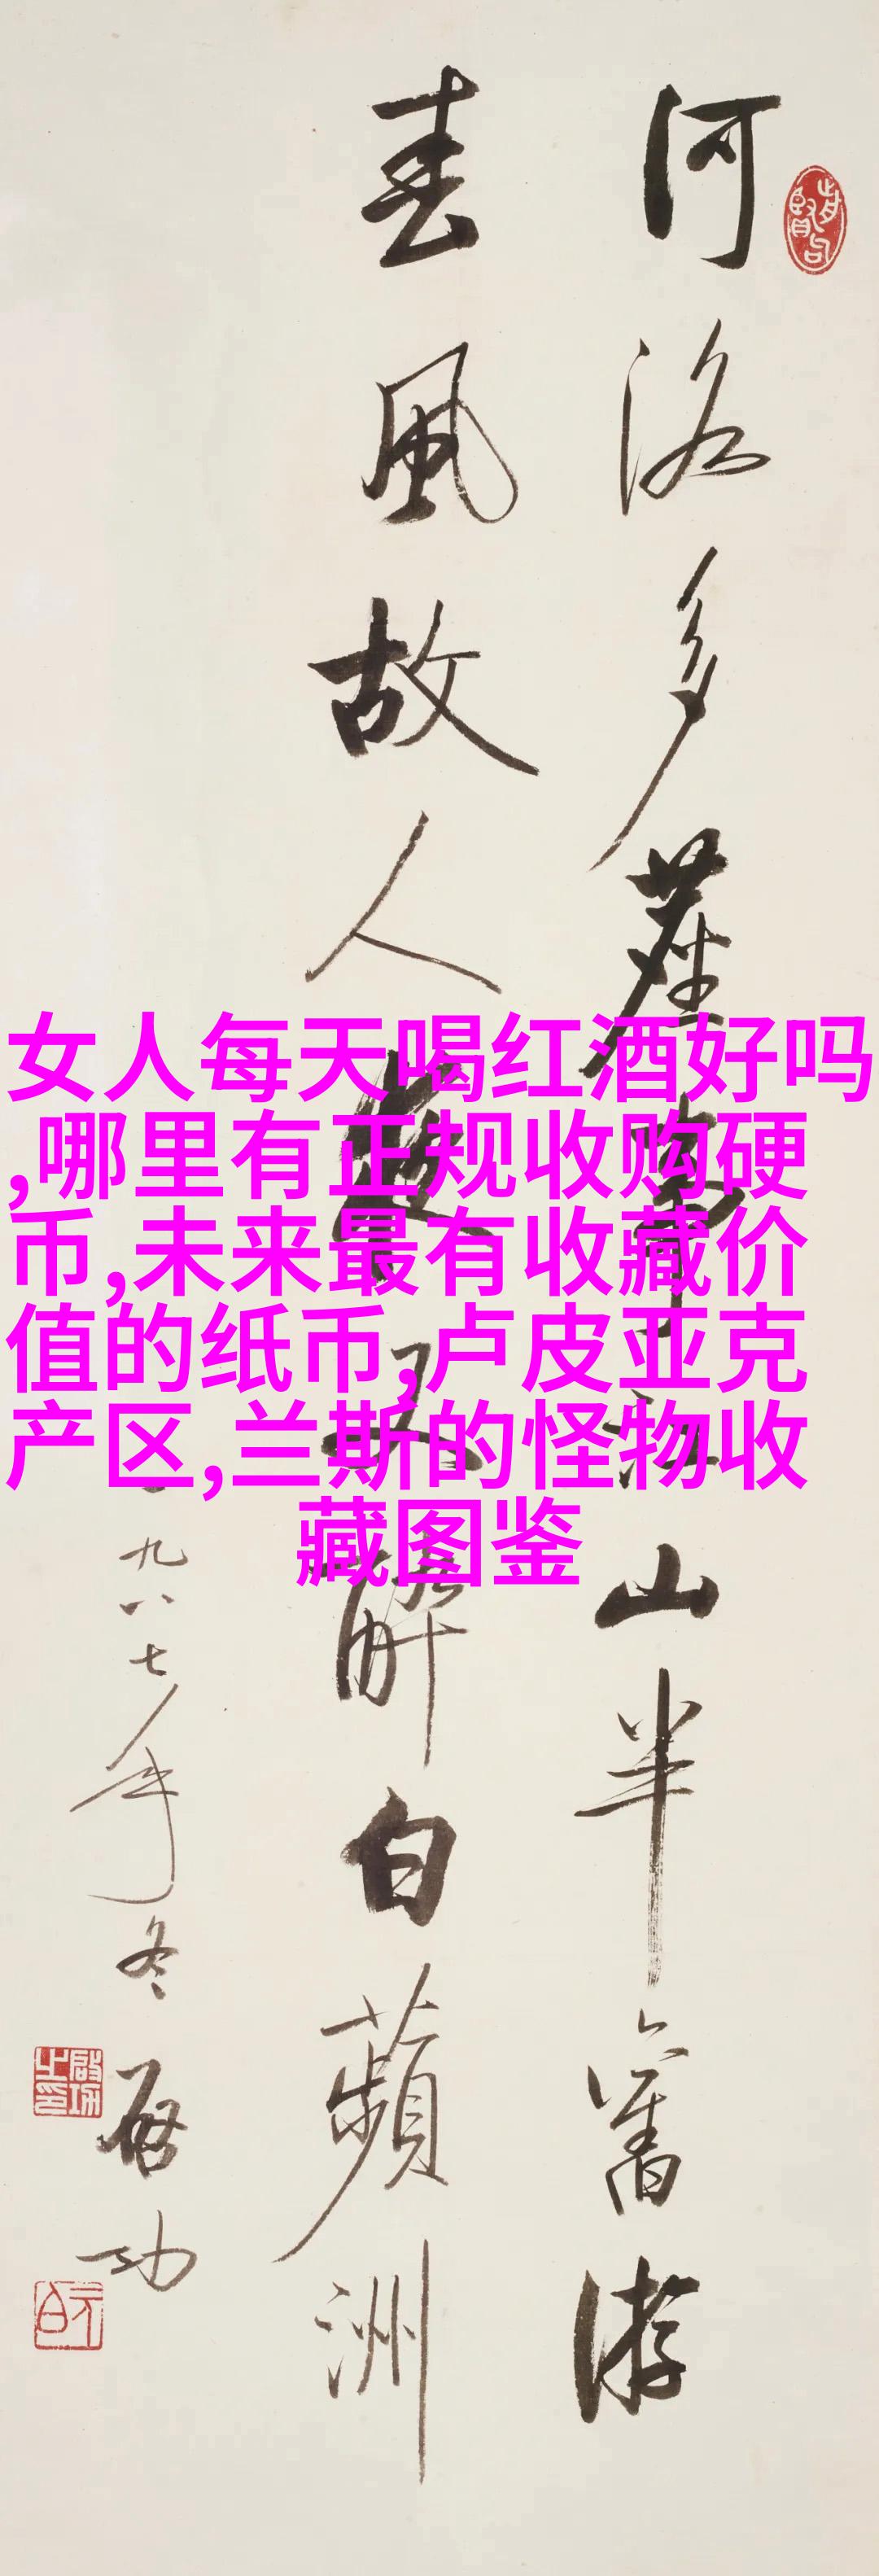 河洛多塵事江山半舊游
春風故人夜又醉白蘋洲
一九八七年冬 启功
啟功之印
元白
女人每天喝红酒好吗
,哪里有正规收购硬
币,未来最有收藏价
值的纸币,卢皮亚克
产区,兰斯的怪物收
藏图鉴